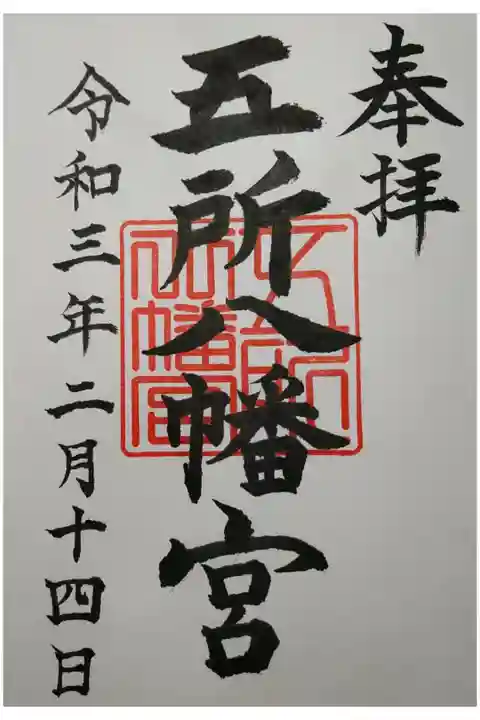 奉拝
五所八幡宮
五所八幡宮
令和三年二月十四日